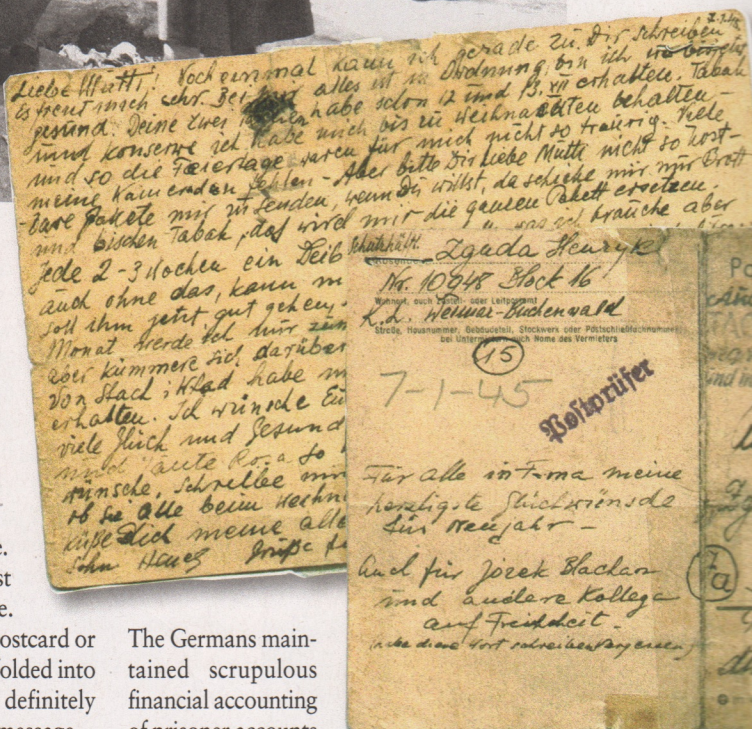 7.1.45
Liebe Mutti! Noch einmal kann ich gerade zu Dir schreiben
Es freut mich sehr. Bei mir alles ist in Ordnung, bin ich
gesund. Deine zwei habe schon 12 und 13. XII erhalten. Tabak
und Konserve ich habe mich bis zu Weihnachten behalten –
und so die Feiertage waren für mich nicht so traurig. Viele
meine Kameraden fehlen – Aber bitte Dir liebe Mutti nicht so kost-
bare Pakete mir zu senden, wenn Du willst, da schicke mir nur Brott
und bischen Tabak, das wird mir die ganzen Pakett ersetzen.
Jede 2-3 Wochen ein Leib was ich brauche aber
auch ohne das, kann m
soll ihm jetzt gut gehen.
Monat werde ich mir zum
aber kümmere sich darüber
Von Stach i Wład habe m
erhalten. Ich wünsche Eu
viele Glück und Gesund
und Tante Roza so
wünsche, Schreibe mir
ob sie alle beim Weihn
küße Dich meine alle
Sohn Heniek Grüße
Schutzhäftl. Zguda Henryk
Nr. 10948 Block 16
Wohnort, auch Zustell- oder Leitpostamt
K.L. Weimar-Buchenwald
Straße, Hausnummer, Gebäudeteil, Stockwerk oder Postschließfachnummer
bei Untermietern auch Name des Vermieters
15
7-1-45
Postprüfer
Für alle in Firma meine
herzligste Glückwünsche
für Neujahr –
Auch für Jozek Blachar
und andere Kollega
auf Freiheit.
7a
e.
st
e.
ostcard or
folded into
definitely
message
The Germans main-
tained scrupulous
financial accounting
of prisoner accounts